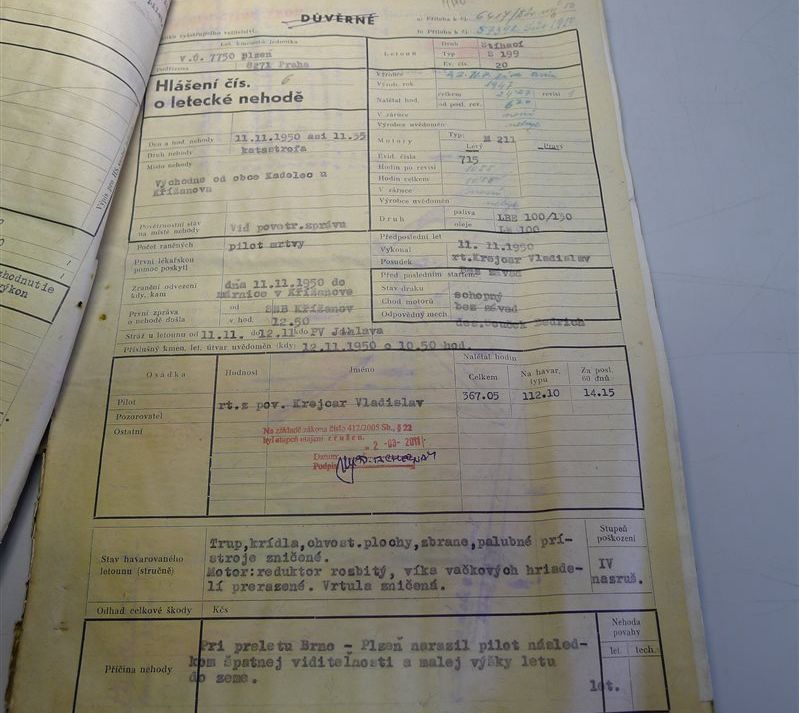 DŮVĚRNĚ
v.ú. 7750 Plzen
8271 Praha
Hlášení čís. 6
o letecké nehodě
Letoun
Druh Stíhací
Typ S 199
Ev. čís. 20
Výrob. rok 1947
Nalétal hod.
celkem
od posl. rev.
V záruce
Výrobce uvědoměn
Motory
Typ: M 211
Levý
Pravý
Evid. číslo 715
Hodin po revisi
Hodin celkem
V záruce
Výrobce uvědoměn
Druh
paliva LBE 100/130
oleje
Den a hod. nehody 11.11.1950 asi 11.35
Druh nehody katastrofa
Místo nehody
Východne od obce Kadolec u
Křížanova
Povětrnostní stav
na místě nehody Vid povětr.správu
Počet raněných pilot mrtvy
První lékařskou
pomoc poskytl
Zranění odvezeni
kdy, kam
dna 11.11.1950 do
márnice v Křížanově
První zpráva
o nehodě došla
od SNB Křížanov
v hod. 12.50
Stráž u letounu od 11.11. do 12.11. kdo PV Jihlava
Příslušný kmen. let. útvar uvědoměn (kdy) 12.11.1950 o 10.50 hod.
Předposlední let
Vykonal 11. 11.1950
Posudek rt.Krejcar Vladislav
Před. posledním startem
bez závad
Stav draku schopný
Chod motorů bez závad
Odpovědný mech des.Souček Bedrich
Osádka
Hodnost
Jméno
Nalétal hodin
Celkem
Na havar. typu
Za posl. 60 dnů
Pilot rt.z pov. Krejcar Vladislav 367.05 112.10 14.15
Pozorovatel
Ostatní
Na základě zákona číslo 412/2005 Sb., § 22
byl stupeň utajení zrušen.
Datum 2 -03- 2011
Podpis
Stav havarovaného
letounu (stručně)
Trup,krídla,chvost.plochy,zbrane,palubné prí-
stroje zničené.
Motor:reduktor rozbitý, víka vačkových hriade-
lí prerazené. Vrtula zničená.
Stupeň
poškození
IV
nasruš.
Odhad celkové škody Kčs
Příčina nehody
Pri preletu Brno - Plzeň narazil pilot násled-
kom špatnej viditeľnosti a malej výšky letu
do zeme.
Nehoda
povahy
let. tech.
let.